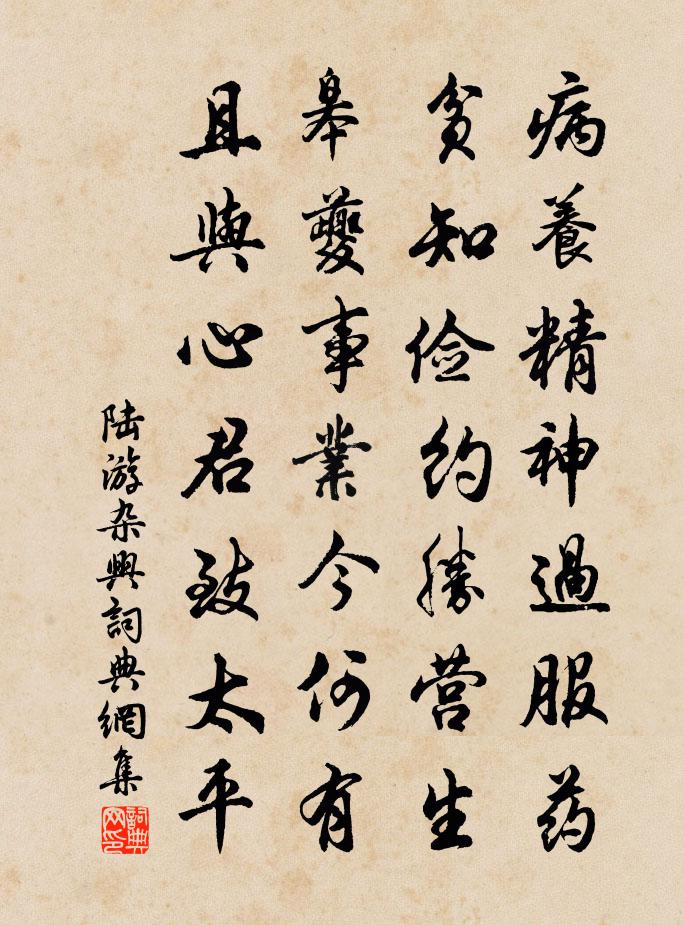 病養精神過服药
貧知俭約勝营生
皋夔事業今何有
且與心君致太平
陆游杂興詞典網集
詞典网印